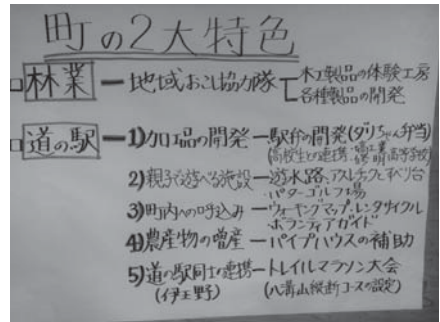 町の2大特色
林業 ー 地域おこし協力隊 木工製品の体験工房
各種製品の開発
道の駅 ー 1)加工品の開発ー駅弁の開発(ダリちゃん弁当)
(高校生との連携・
2)親子で遊べる施設ー遊水路、アスレチックとすべり台
・パターゴルフ場
3)町内への呼込みーウォーキングマップ・レンタサイクル
ボランティアガイド
4)農産物の増産ーパイプハウスの補助
5)道の駅同士の連携ートレイルマラソン大会
(伊王野) (八溝山縦断コースの設定)